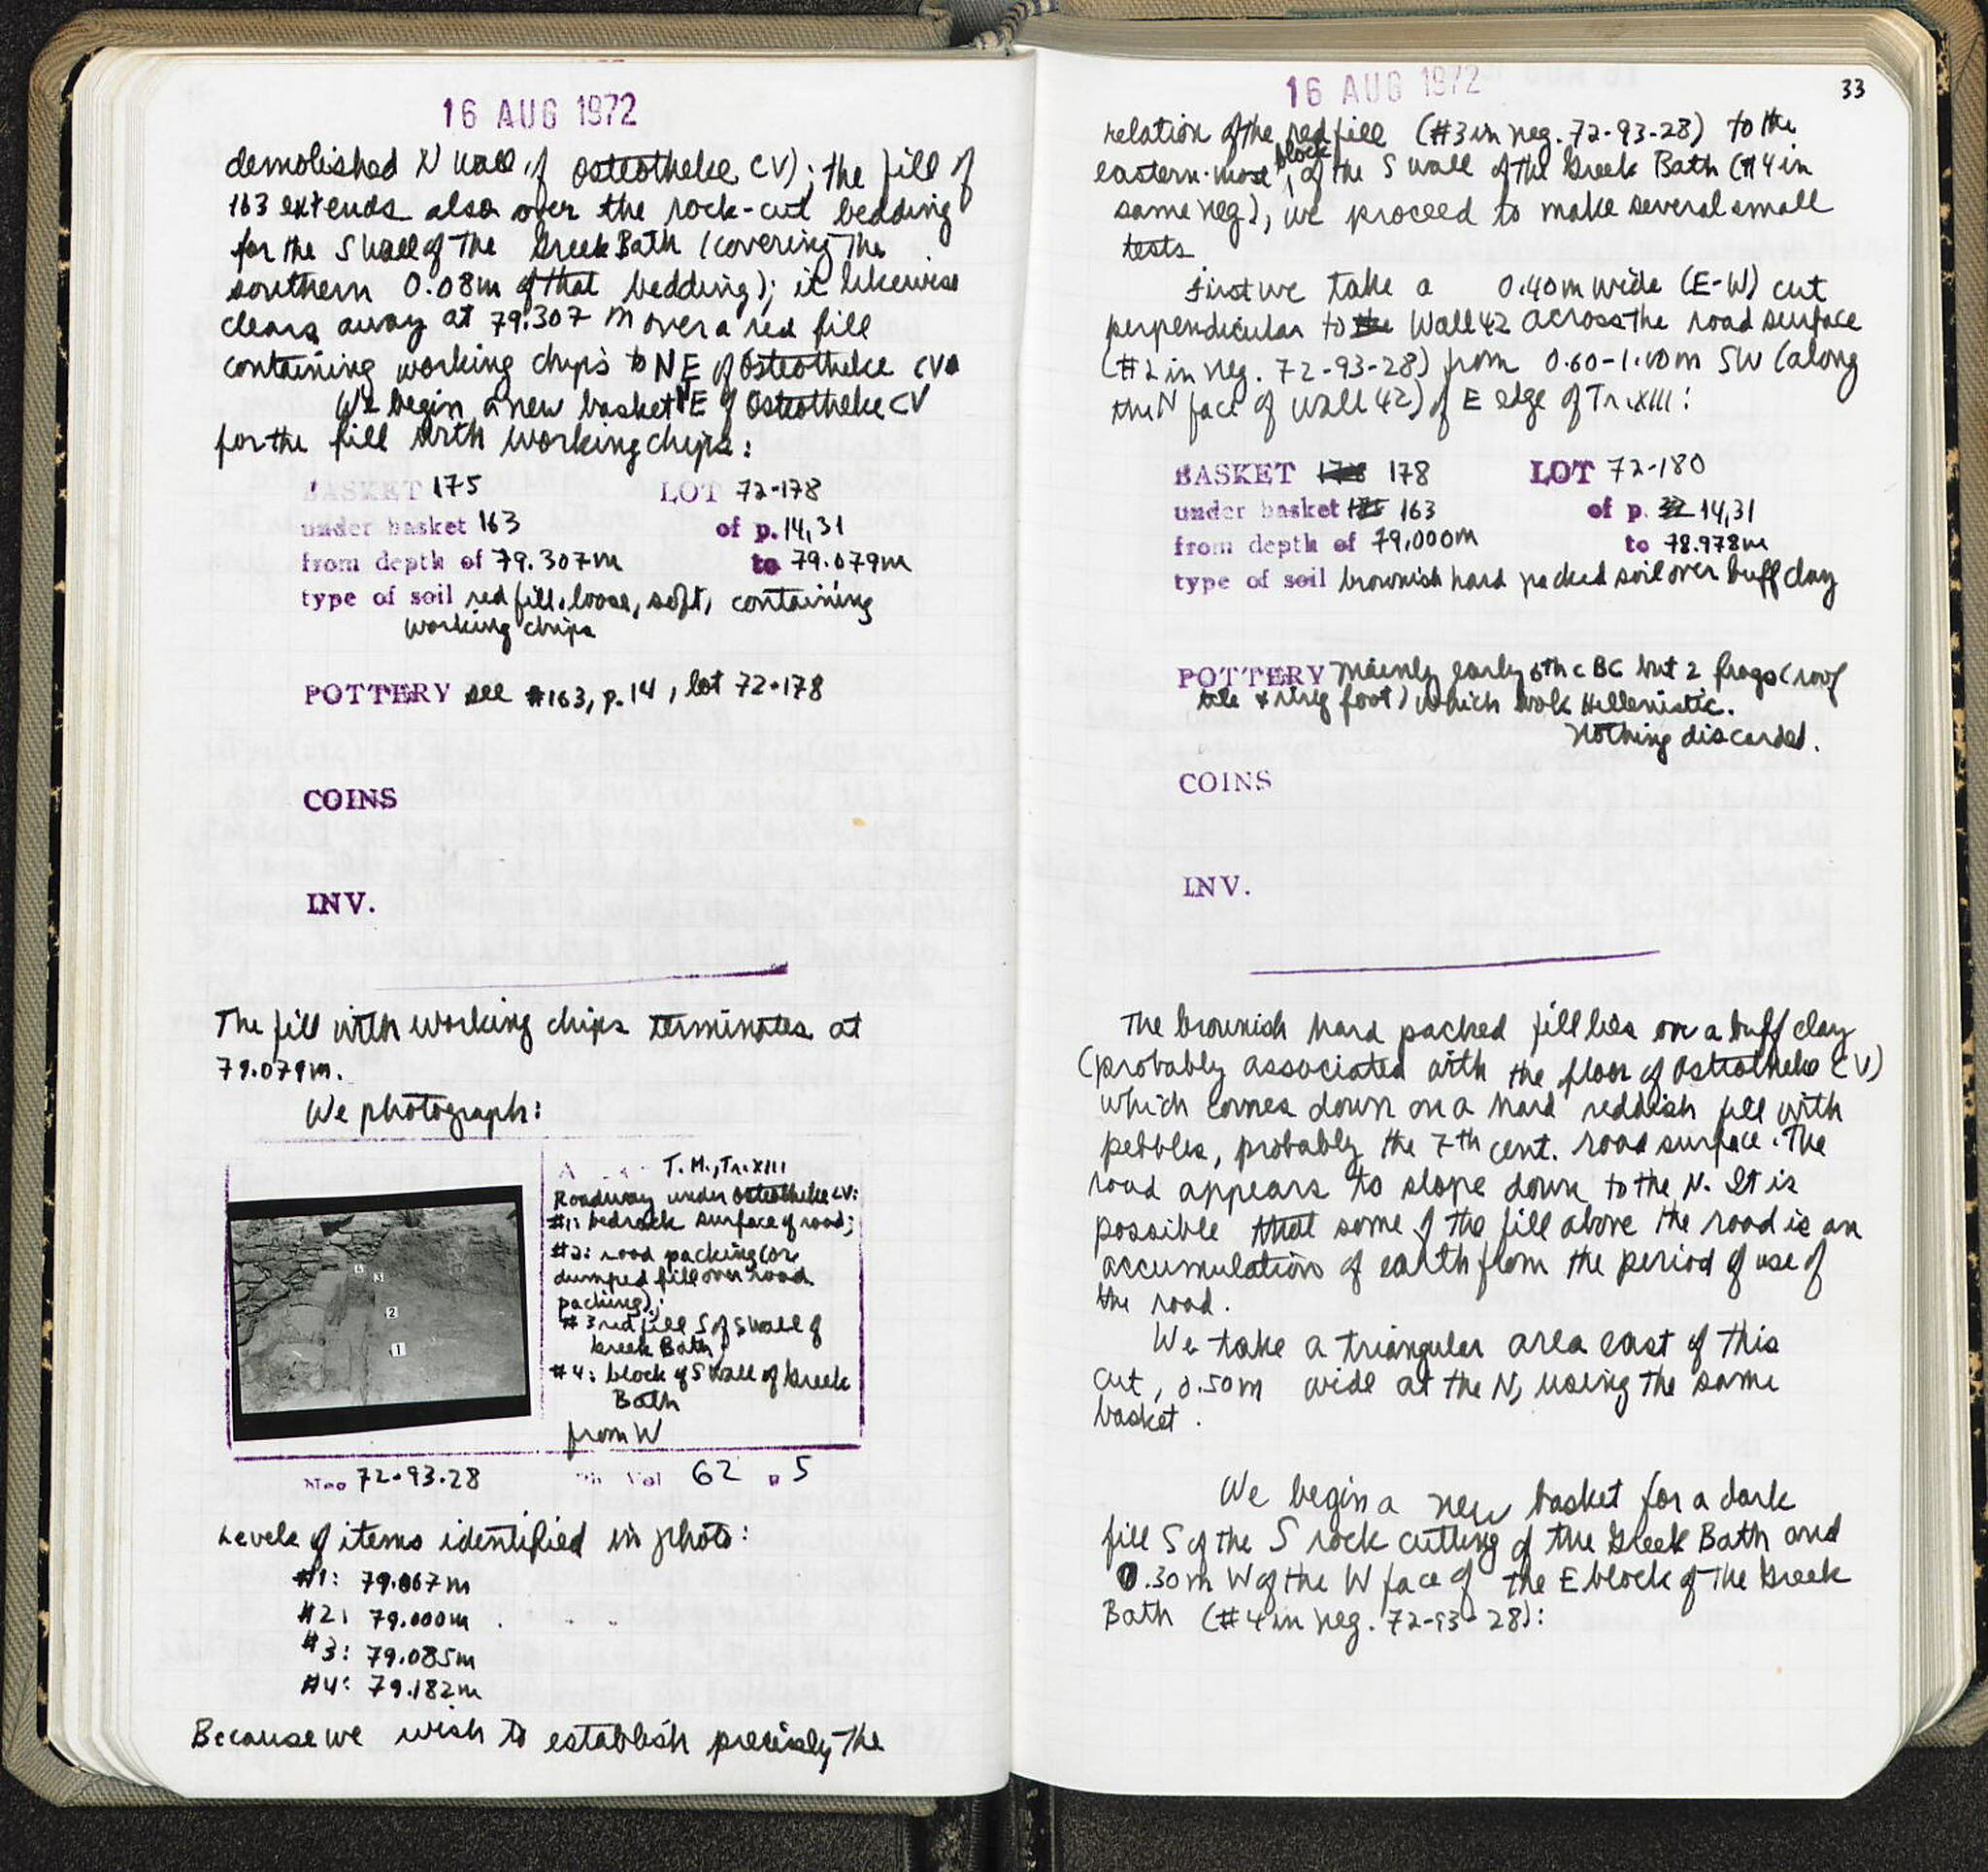 16 AUG 1972
demolished N wall of Osteotheke CV); the fill of
163 extends also over the rock-cut bedding
for the S wall of The Greek Bath (covering the
southern 0.08m of that bedding); it likewise
clears away at 79.307 m over a red fill
containing working chips to NE of Osteotheke CV.
We begin a new basket NE of Osteotheke CV
for the fill with working chips:
BASKET 175 LOT 72-178
under basket 163 of p. 14,31
from depth of 79.307m to 79.079m
type of soil red fill, loose, soft, containing
working chips
POTTERY see #163, p.14, lot 72-178
COINS
INV.
The fill with working chips terminates at
79.079m.
We photograph:
T.M., Tr. XIII
Roadway under Osteotheke CV:
#1: bedrock surface of road;
#2: road packing (or
dumped fill over road
packing);
#3 red fill S of S wall of
Greek Bath;
#4: block of S wall of Greek
Bath
from W
4
3
2
1
Neg 72-93-28 Ph Vol 62 p 5
Levels of items identified in photo:
#1: 79.067m
#2: 79.000m
#3: 79.085m
#4: 79.182m
Because we wish to establish precisely the
16 AUG 1972
33
relation of the red fill (#3 in neg. 72-93-28) to the
eastern-most block of the S wall of the Greek Bath (#4 in
same neg), we proceed to make several small
tests.
First we take a 0.40m wide (E-W) cut
perpendicular to the Wall 42 across the road surface
(#2 in neg. 72-93-28) from 0.60-1.00m SW (along
the N face of Wall 42) of E edge of Tr. XIII:
BASKET 178 LOT 72-180
under basket 163 of p. 32 14,31
from depth of 79.000m to 78.978m
type of soil brownish hard packed soil over buff clay
POTTERY Mainly early 6th c BC but 2 frags (roof
tile & ring foot) which look Hellenistic.
Nothing discarded.
COINS
INV.
The brownish hard packed fill lies on a buff clay
(probably associated with the floor of Osteotheke CV)
which comes down on a hard reddish fill with
pebbles, probably the 7th cent. road surface. The
road appears to slope down to the N. It is
possible that some of the fill above the road is an
accumulation of earth from the period of use of
the road.
We take a triangular area east of this
cut, 0.50m wide at the N, using the same
basket.
We begin a new basket for a dark
fill S of the S rock cutting of the Greek Bath and
0.30m W of the W face of the E block of the Greek
Bath (#4 in neg. 72-93-28):